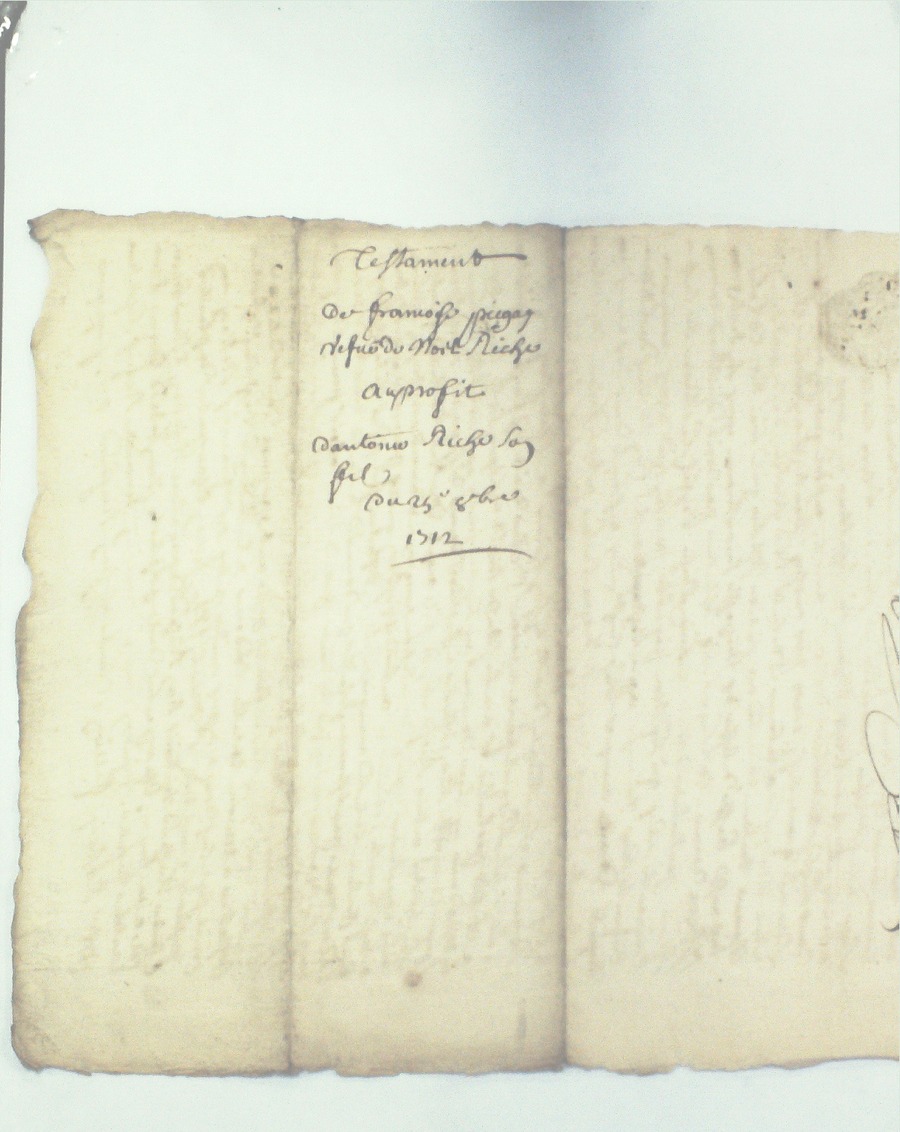 Testament
de francoise piegay
vefue de Noel Riche
au profit
dantoine Riche son
fils
du 25e 8bre
1712